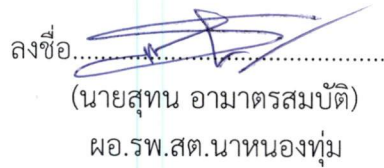 ลงชื่อ........................................
(นายสุทน อามาตรสมบัติ)
ผอ.รพ.สต.นาหนองทุ่ม